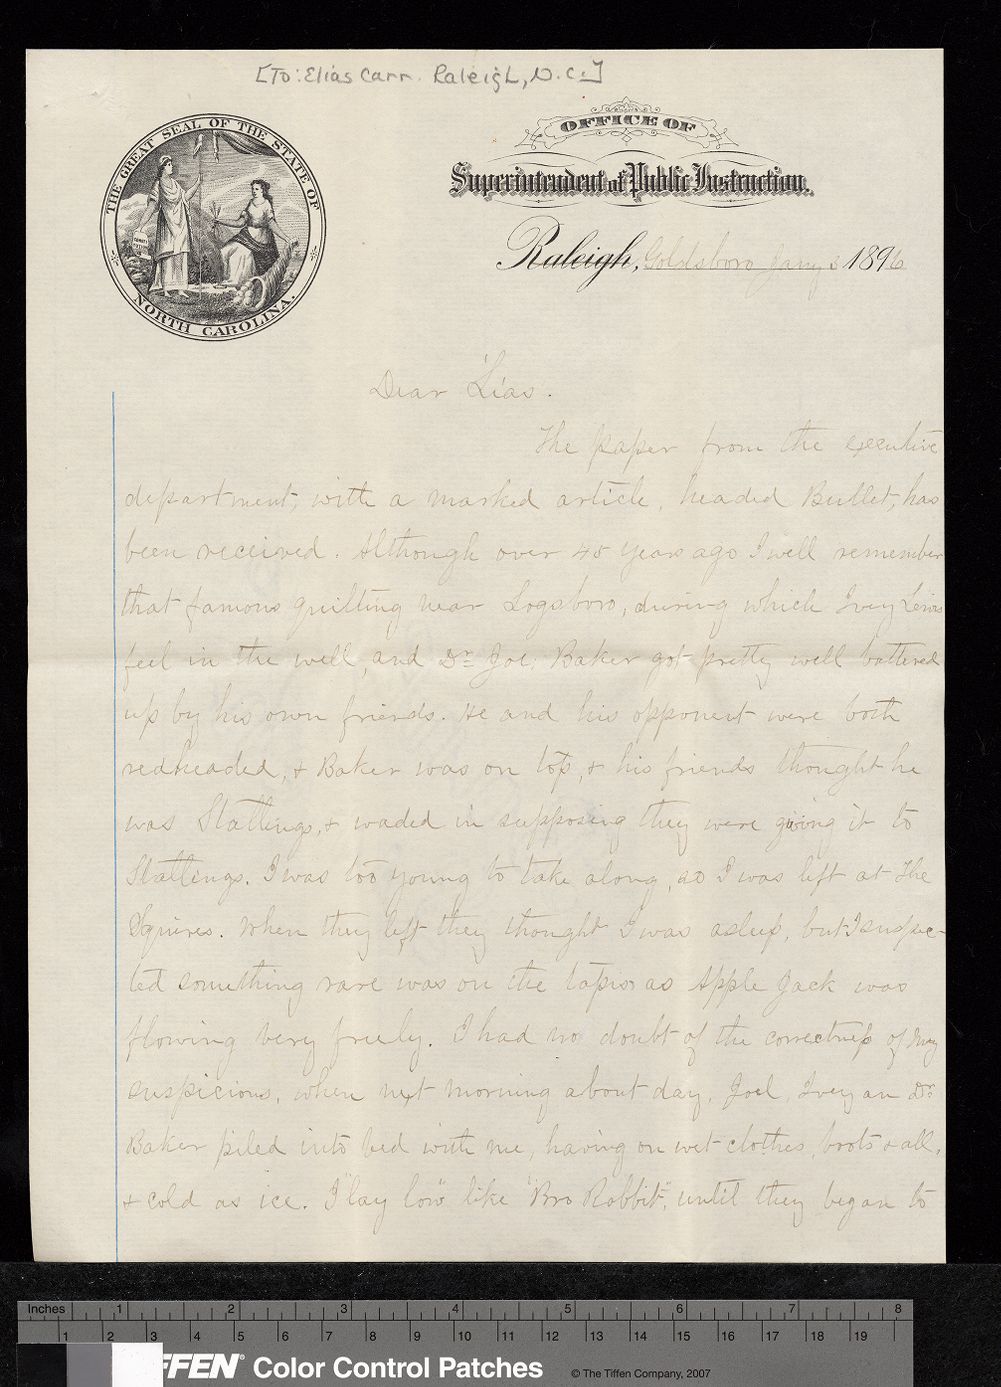 [To: Elias Carr. Raleigh, N.C.]
THE GREAT SEAL OF THE STATE OF
NORTH CAROLINA.
OFFICE OF
Superintendent of Public Instruction.
Raleigh, Goldsboro Jany 3 1896
Dear 'Lias.
The paper from the executive
department, with a marked article, headed Bullet, has
been received. Although over 45 years ago I well remember
that famous quilting near Logsboro, during which Ivey Lewis
feel in the well, and Dr. Joe; Baker got pretty well battered
up by his own friends. He and his opponent were both
redheaded, & Baker was on top, & his friends thought he
was Stallings, & waded in supposing they were giving it to
Stallings. I was too young to take along, so I was left at the
Squires. When they left they thought I was asleep, but I suspec-
ted something rare was on the tapis as Apple Jack was
flowing very freely. I had no doubt of the correctness of my
suspicions, when next morning about day, Joel, Ivey an Dr.
Baker piled into bed with me, having on wet clothes, boots & all,
& cold as ice. I "lay low" like "Bro Rabbit", until they began to
Inches 1 2 3 4 5 6 7 8
1 2 3 4 5 6 7 8 9 10 11 12 13 14 15 16 17 18 19
FFEN® Color Control Patches © The Tiffen Company, 2007